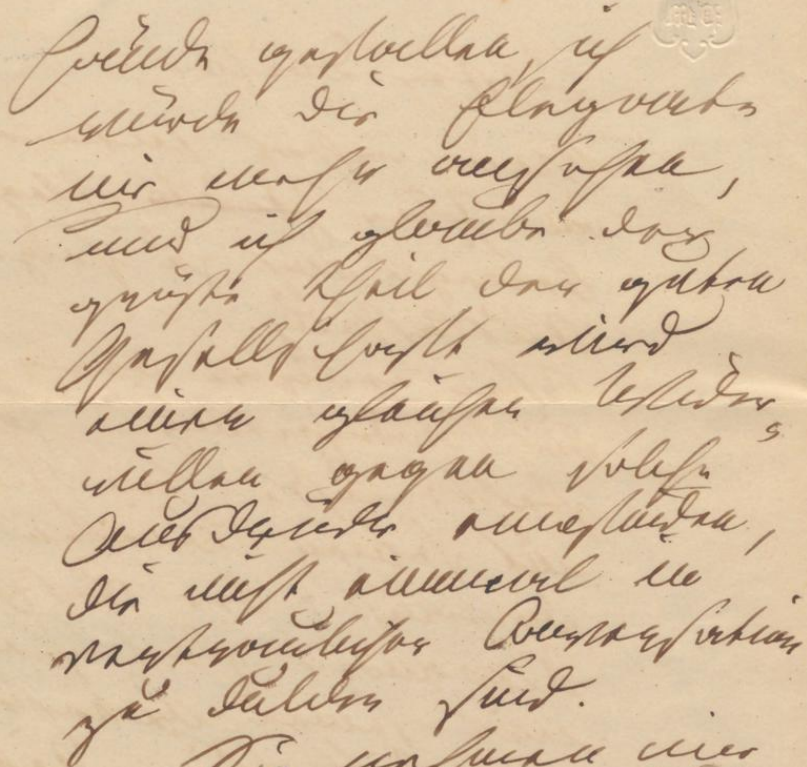 Hände gefallen, ich
würde die Elegante
nie mehr ansehen,
und ich glaube der
größte Theil der guten
Gesellschaft wird
einen gleichen Wider-
willen gegen solche
Ausdrücke empfinden,
die nicht einmal in
vertraulicher Conversation
zu dulden sind.
Sie nehmen mir